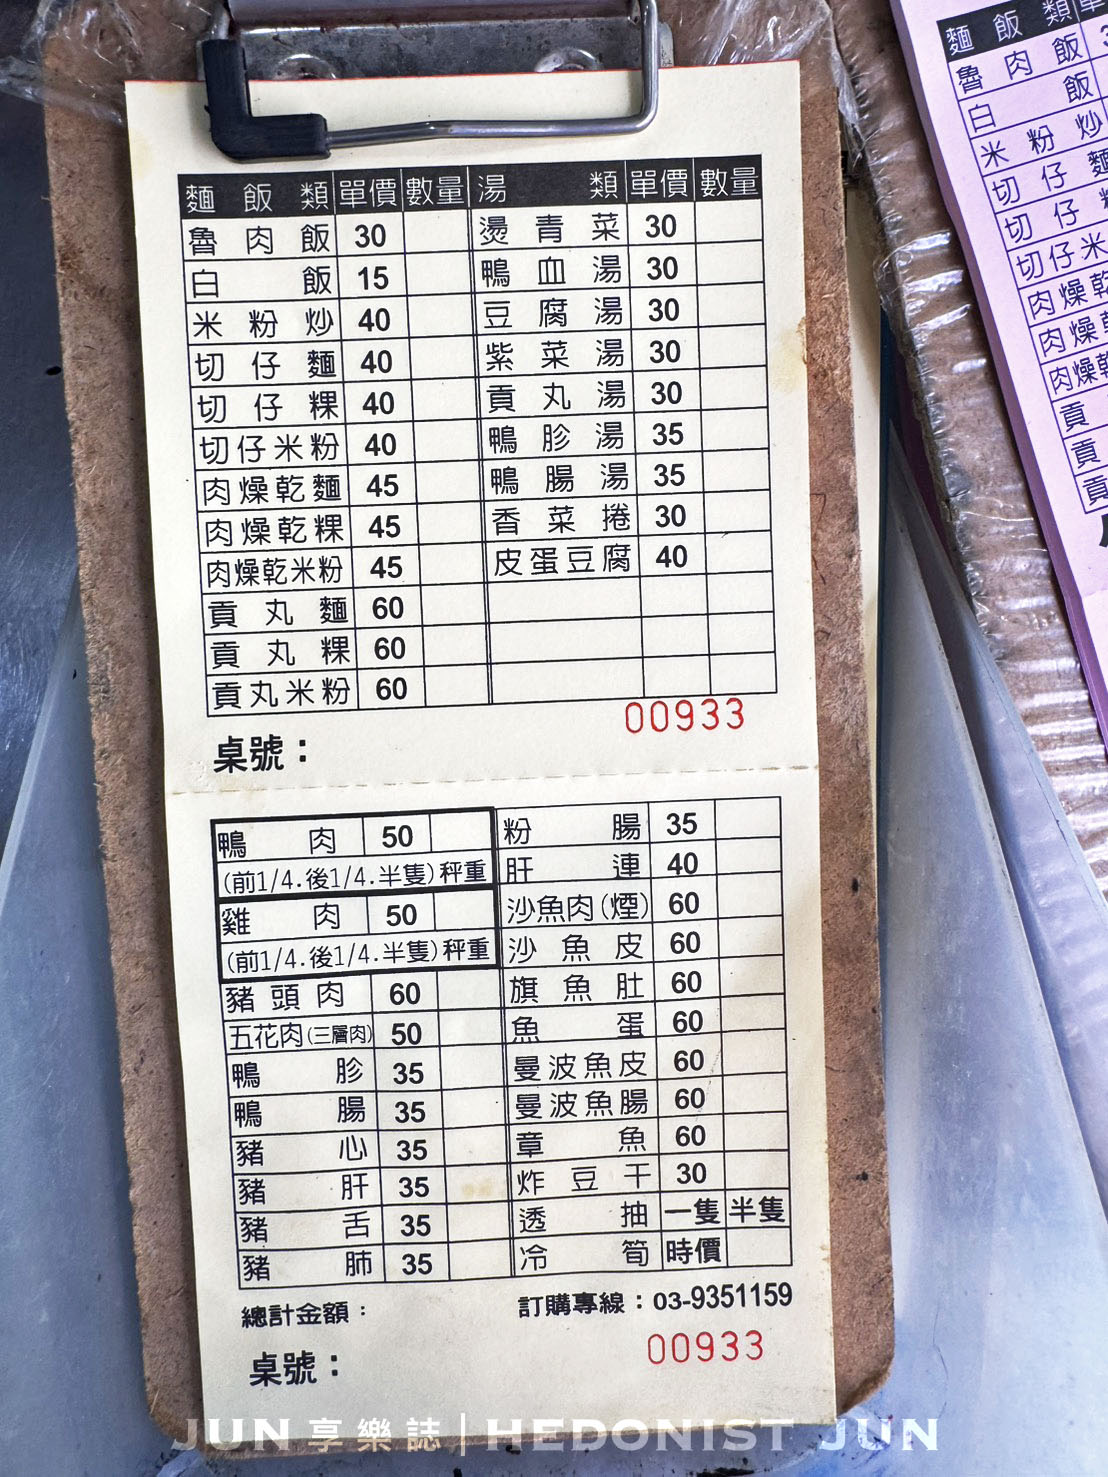 麵飯類 單價 數量 湯類 單價 數量
魯肉飯 30 燙青菜 30
白飯 15 鴨血湯 30
米粉炒 40 豆腐湯 30
切仔麵 40 紫菜湯 30
切仔粿 40 貢丸湯 30
切仔米粉 40 鴨胗湯 35
肉燥乾麵 45 鴨腸湯 35
肉燥乾粿 45 香菜捲 30
肉燥乾米粉 45 皮蛋豆腐 40
貢丸麵 60
貢丸粿 60
貢丸米粉 60
00933
桌號：
鴨肉 50 粉腸 35
(前1/4.後1/4.半隻)秤重 肝連 40
雞肉 50 沙魚肉(煙) 60
(前1/4.後1/4.半隻)秤重 沙魚皮 60
豬頭肉 60 旗魚肚 60
五花肉(三層肉) 50 魚蛋 60
鴨胗 35 曼波魚皮 60
鴨腸 35 曼波魚腸 60
豬心 35 章魚 60
豬肝 35 炸豆干 30
豬舌 35 透抽 一隻 半隻
豬肺 35 冷筍 時價
總計金額： 訂購專線：03-9351159
桌號： 00933
麵飯類單
魯肉飯 3
白飯
米粉炒
切仔麵
切仔
切仔米
肉燥乾
肉燥
肉燥
貢
貢
貢
JUN享樂誌｜HEDONIST JUN